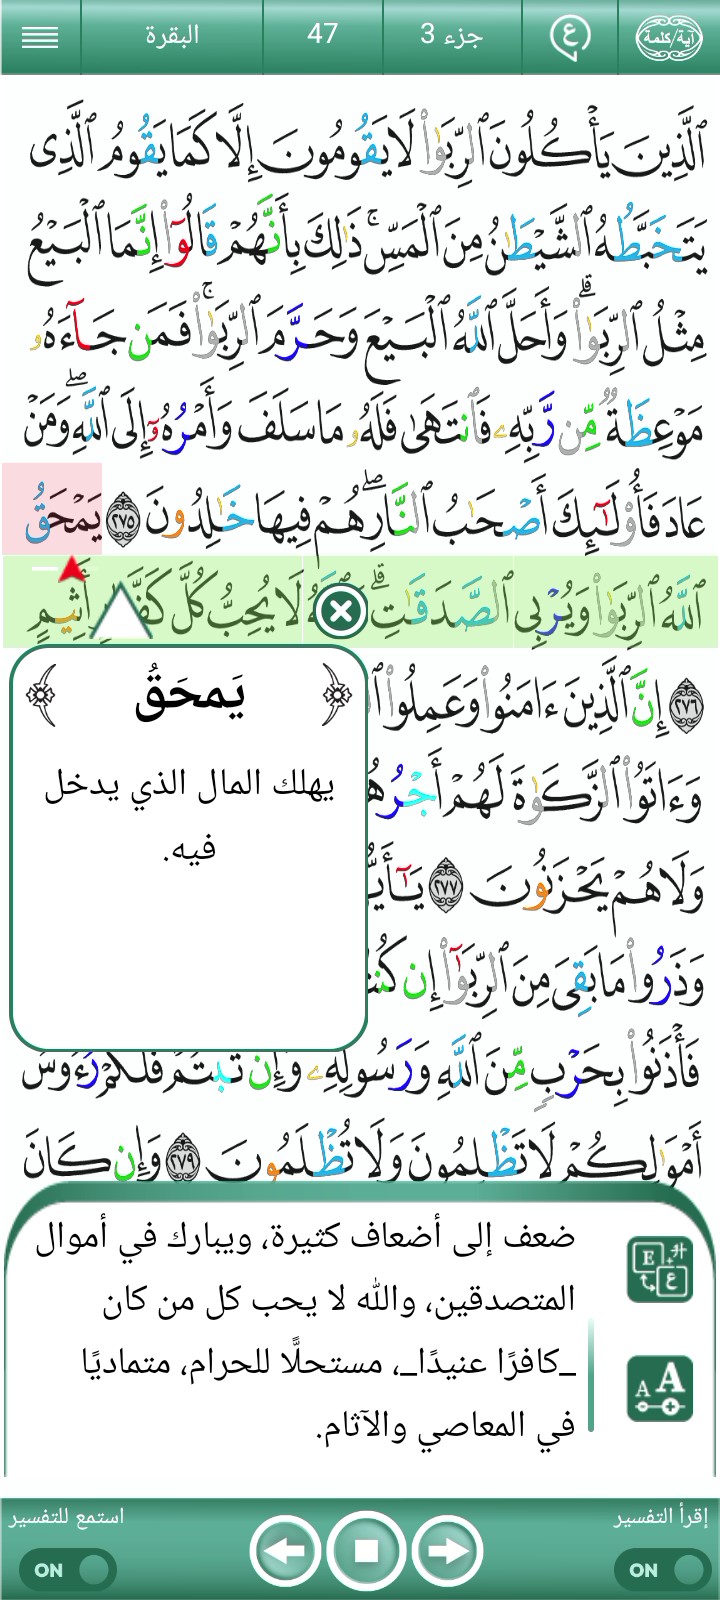 البقرة
47
جزء 3
ع
آية/كلمة
ٱلَّذِينَ يَأْكُلُونَ ٱلرِّبَوٰا۟ لَا يَقُومُونَ إِلَّا كَمَا يَقُومُ ٱلَّذِى
يَتَخَبَّطُهُ ٱلشَّيْطَـٰنُ مِنَ ٱلْمَسِّ ۚ ذَٰلِكَ بِأَنَّهُمْ قَالُوٓا۟ إِنَّمَا ٱلْبَيْعُ
مِثْلُ ٱلرِّبَوٰا۟ ۗ وَأَحَلَّ ٱللَّهُ ٱلْبَيْعَ وَحَرَّمَ ٱلرِّبَوٰا۟ ۚ فَمَن جَآءَهُۥ
مَوْعِظَةٌ مِّن رَّبِّهِۦ فَٱنتَهَىٰ فَلَهُۥ مَا سَلَفَ وَأَمْرُهُۥٓ إِلَى ٱللَّهِ ۖ وَمَنْ
عَادَ فَأُو۟لَـٰٓئِكَ أَصْحَـٰبُ ٱلنَّارِ ۖ هُمْ فِيهَا خَـٰلِدُونَ ٢٧٥ يَمْحَقُ
ٱللَّهُ ٱلرِّبَوٰا۟ وَيُرْبِى ٱلصَّدَقَـٰتِ ۗ لَا يُحِبُّ كُلَّ أَثِيمٍ
٢٧٦ إِنَّ ٱلَّذِينَ ءَامَنُوا۟ وَعَمِلُوا۟
وَءَاتَوُا۟ ٱلزَّكَوٰةَ لَهُمْ
وَلَا هُمْ يَحْزَنُونَ ٢٧٧
وَذَرُوا۟ مَا بَقِىَ مِنَ ٱلرِّبَوٰٓا۟ إِن
فَأْذَنُوا۟ بِحَرْبٍ مِّنَ ٱللَّهِ وَرَسُولِهِۦ وَإِن تُبْتُمْ فَلَكُمْ رُءُوسُ
أَمْوَٰلِكُمْ لَا تَظْلِمُونَ وَلَا تُظْلَمُونَ ٢٧٩ وَإِن كَانَ
يَمحَقُ
يهلك المال الذي يدخل
فيه.
ضعف إلى أضعاف كثيرة، ويبارك في أموال
المتصدقين، والله لا يحب كل من كان
_كافرًا عنيدًا_، مستحلًّا للحرام، متماديًا
في المعاصي والآثام.
E
ع
A A
إقرأ التفسير
استمع للتفسير
ON
ON